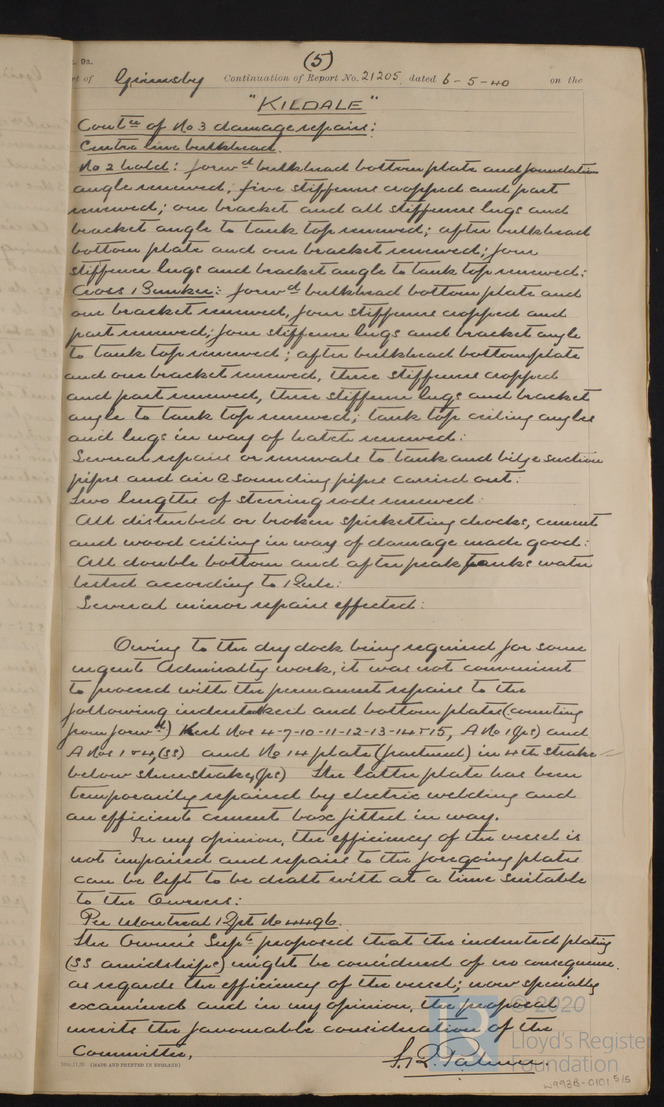 (5)
rt of Grimsby Continuation of Report No. 21205 dated 6-5-40 on the
"KILDALE"
Contce of No 3 damage repairs:
Centre line bulkhead.
No 2 hold: forwd bulkhead bottom plate and foundation
angle renewed, five stiffeners cropped and part
renewed; one bracket and all stiffener lugs and
bracket angle to tank top renewed; after bulkhead
bottom plate and one bracket renewed; four
stiffener lugs and bracket angle to tank top renewed:
Cross Bunker: forwd bulkhead bottom plate and
one bracket renewed, four stiffeners cropped and
part renewed; four stiffener lugs and bracket angle
to tank top renewed; after bulkhead bottom plate
and one bracket renewed, three stiffeners cropped
and part renewed, three stiffener lugs and bracket
angle to tank top renewed; tank top ceiling angles
and lugs in way of hatch renewed:
Several repairs or renewals to tank and bilge suction
pipes and air & sounding pipes carried out:
Two lengths of steering rods renewed:
All disturbed or broken spirketting chocks, cement
and wood ceiling in way of damage made good:
All double bottom and after peak tanks water
tested according to Rule:
Several minor repairs effected:
Owing to the dry dock being required for some
urgent Admiralty work, it was not convenient
to proceed with the permanent repairs to the
following indented keel and bottom plates (counting
from forwd) Keel Nos 4-7-10-11-12-13-14 & 15, A No 1 (ps) and
A Nos 1 & 4, (SS) and No 14 plate (fractured) in 4th strake
below sheerstrake (ps) The latter plate has been
temporarily repaired by electric welding and
an efficient cement box fitted in way.
In my opinion, the efficiency of the vessel is
not impaired and repairs to the foregoing plates
can be left to be dealt with at a time suitable
to the Owners:
Per Montreal Rpt No 4496.
The Owner's Supt proposed that the indented plating
(SS amidships) might be considered of no consequence
as regards the efficiency of the vessel; now specially
examined and in my opinion, the proposal
merits the favourable consideration of the
Committee.
S. R. Palmer.
(MADE AND PRINTED IN ENGLAND)
© 2020
Lloyd's Register
Foundation
W993B-0101 5/5